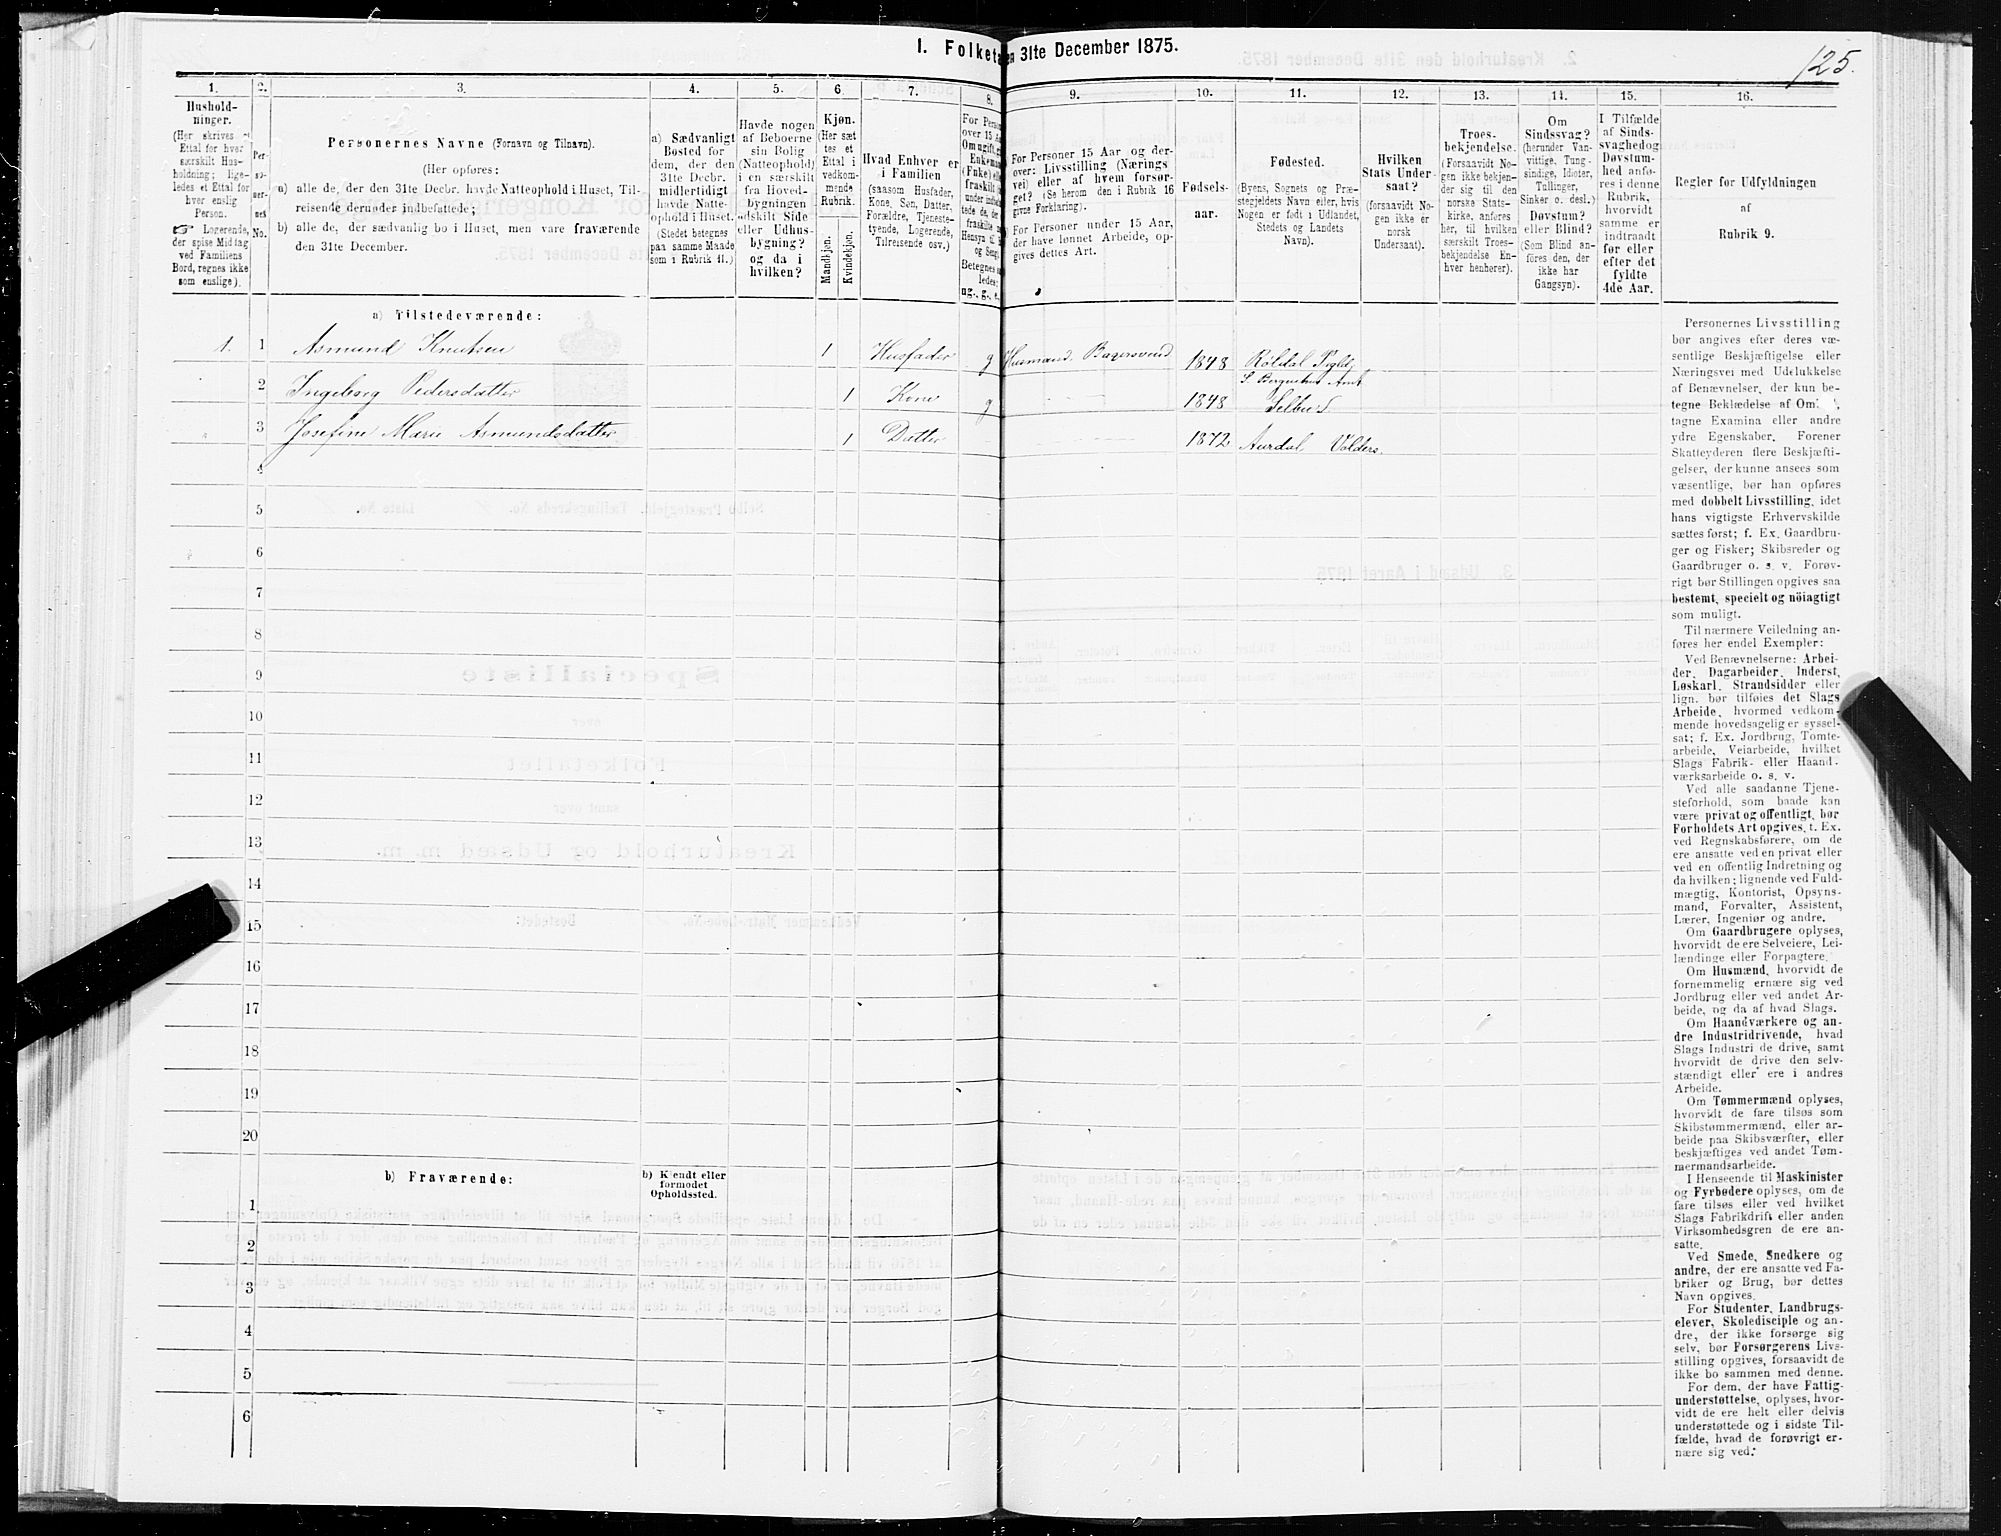 1. Folketa
en 31te December 1875.
125.
1.
2.
3.
4.
5.
6.
7.
8.
9.
10.
11.
12.
13.
14.
15.
16.
Hushold-
ninger.
(Her skrives et
Ettal for hver
særskilt Hus-
holdning; lige-
ledes et Ettal for
hver enslig
Person.
☞ Logerende,
der spise Middag
ved Familiens
Bord, regnes ikke
som enslige).
Per-
so-
ner-
nes
No.
Personernes Navne (Fornavn og Tilnavn).
(Her opføres:
a) alle de, der den 31te Decbr. havde Natteophold i Huset, Til-
reisende derunder indbefattede;
b) alle de, der sædvanlig bo i Huset, men vare fraværende
den 31te December.
a) Sædvanligt
Bosted for
dem, der den
31te Decbr.
midlertidigt
havde Natte-
ophold i Huset.
(Stedet betegnes
paa samme Maade
som i Rubrik 11.)
Havde nogen
af Beboerne
sin Bolig
(Natteophold)
i en særskilt
fra Hoved-
bygningen
adskilt Side
eller Udhus-
bygning?
og da i
hvilken?
Kjøn.
(Her sæt
tes et
Ettal i
vedkom-
mende
Rubrik.
Mandkjøn.
Kvindekjøn.
Hvad Enhver er
i Familien
(saasom Husfader,
Kone, Søn, Datter,
Forældre, Tjeneste-
tyende, Logerende,
Tilreisende osv.)
For Personer 15 Aar og der-
over: Livsstilling (Nærings
vei) eller af hvem forsør-
get? (Se herom den i Rubrik 16
givne Forklaring).
For Personer under 15 Aar,
der have lønnet Arbeide, op-
gives dettes Art.
Fødsels-
aar.
Fødested.
(Byens, Sognets og Præ-
stegjeldets Navn eller, hvis
Nogen er født i Udlandet,
Stedets og Landets
Navn).
Hvilken
Stats Under-
saat?
(forsaavidt No-
gen ikke er
norsk
Undersaat).
Troes-
bekjendelse.
(Forsaavidt No-
gen ikke bekjen-
der sig til den
norske Stats-
kirke, anføres
her, til hvilken
særskilt Troes-
bekjendelse En-
hver henhører).
Om
Sindssvag?
(herunder Van-
vittige, Tung-
sindige, Idioter,
Tullinger,
Sinker o. desl.)
Døvstum?
eller Blind?
(Som Blind an-
føres den, der
ikke har
Gangsyn).
I Tilfælde
af Sinds-
svaghed og
Døvstum-
hed anfø-
res i denne
Rubrik,
hvorvidt
samme er
indtraadt
før eller
efter det
fyldte
4de Aar.
Regler for Udfyldningen
af
Rubrik 9.
a) Tilstedeværende:
1. 1 Asmund Knutsen 1 Husfader g Husmand 1848 Röldal
S. Bergenhus Amt
2 Ingeborg Pedersdatter 1 Kone g 1848 Selbu
3 Josefine Marie Asmundsdatter 1 Datter 1872 Aurdal Valders
4
5
6
7
8
9
10
11
12
13
14
15
16
17
18
19
20
b) Fraværende:
b) Kjendt eller
formodet
Opholdssted.
1
2
3
4
5
6
Personernes Livsstilling
bør angives efter deres væ-
sentlige Beskjæftigelse eller
Næringsvei med Udelukkelse
af Benævnelser, der kun be-
tegne Beklædelse af Om
tagne Examina eller andre
ydre Egenskaber. Forener
Skatteyderen flere Beskjæfti-
gelser, der kunne ansees som
væsentlige, bør han opføres
med dobbelt Livsstilling, idet
hans vigtigste Erhvervskilde
sættes først; f. Ex. Gaardbru-
ger og Fisker; Skibsreder og
Gaardbruger o. s. v. Forøv-
rigt bør Stillingen opgives saa
bestemt, specielt og nöiagtigt
som muligt.
Til nærmere Veiledning an-
føres her endel Exempler:
Ved Benævnelserne: Arbei-
der, Dagarbeider, Inderst,
Løskarl, Strandsidder eller
lign. bør tilføies det Slags
Arbeide, hvormed vedkom-
mende hovedsagelig er syssel-
sat; f. Ex. Jordbrug, Tomte-
arbeide, Veiarbeide, hvilket
Slags Fabrik- eller Haand-
værksarbeide o. s. v.
Ved alle saadanne Tjene-
steforhold, som baade kan
være privat og offentligt, bør
Forholdets Art opgives, t. Ex.
ved Regnskabsførere, om de
ere ansatte ved en privat eller
ved en offentlig Indretning og
da hvilken; lignende ved Fuld-
mægtig, Kontorist, Opsyns-
mand, Forvalter, Assistent,
Lærer, Ingeniør og andre.
Om Gaardbrugere oplyses,
hvorvidt de ere Selveiere, Lei-
lændinge eller Forpagtere.
Om Husmænd, hvorvidt de
fornemmelig ernære sig ved
Jordbrug eller ved andet Ar-
beide, og da af hvad Slags.
Om Haandværkere og an-
dre Industridrivende, hvad
Slags Industri de drive, samt
hvorvidt de drive den selv-
stændigt eller ere i andres
Arbeide.
Om Tømmermænd oplyses,
hvorvidt de fare tilsøs som
Skibstømmermænd, eller ar-
beide paa Skibsværfter, eller
beskjæftiges ved andet Tøm-
mermandsarbeide.
I Henseende til Maskinister
og Fyrbødere oplyses, om de
fare tilsøs eller ved hvilket
Slags Fabrikdrift eller anden
Virksomhedsgren de ere an-
satte.
Ved Smede, Snedkere og
andre, der ere ansatte ved Fa-
briker og Brug, bør dettes
Navn opgives.
For Studenter, Landbrugs-
elever, Skoledisciple og an-
dre, der ikke forsørge sig
selv, bør Forsørgerens Livs-
stilling opgives, forsaavidt de
ikke bo sammen med denne.
For dem, der have Fattig-
understøttelse, oplyses, hvor-
vidt de ere helt eller delvis
understøttede og i sidste Til-
fælde, hvad de forøvrigt er-
nære sig ved.